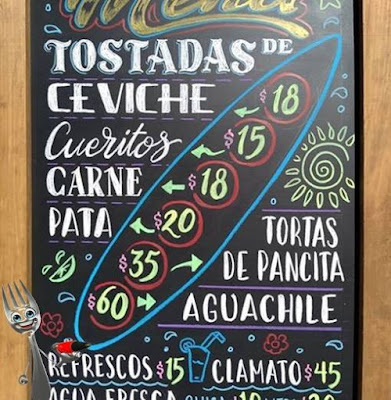 TOSTADAS DE
CEVICHE $18
Cueritos $15
CARNE $18
PATA $20
$35 TORTAS
DE PANCITA
$60 AGUACHILE
REFRESCOS $15 CLAMATO $45
AGUA FRESCA